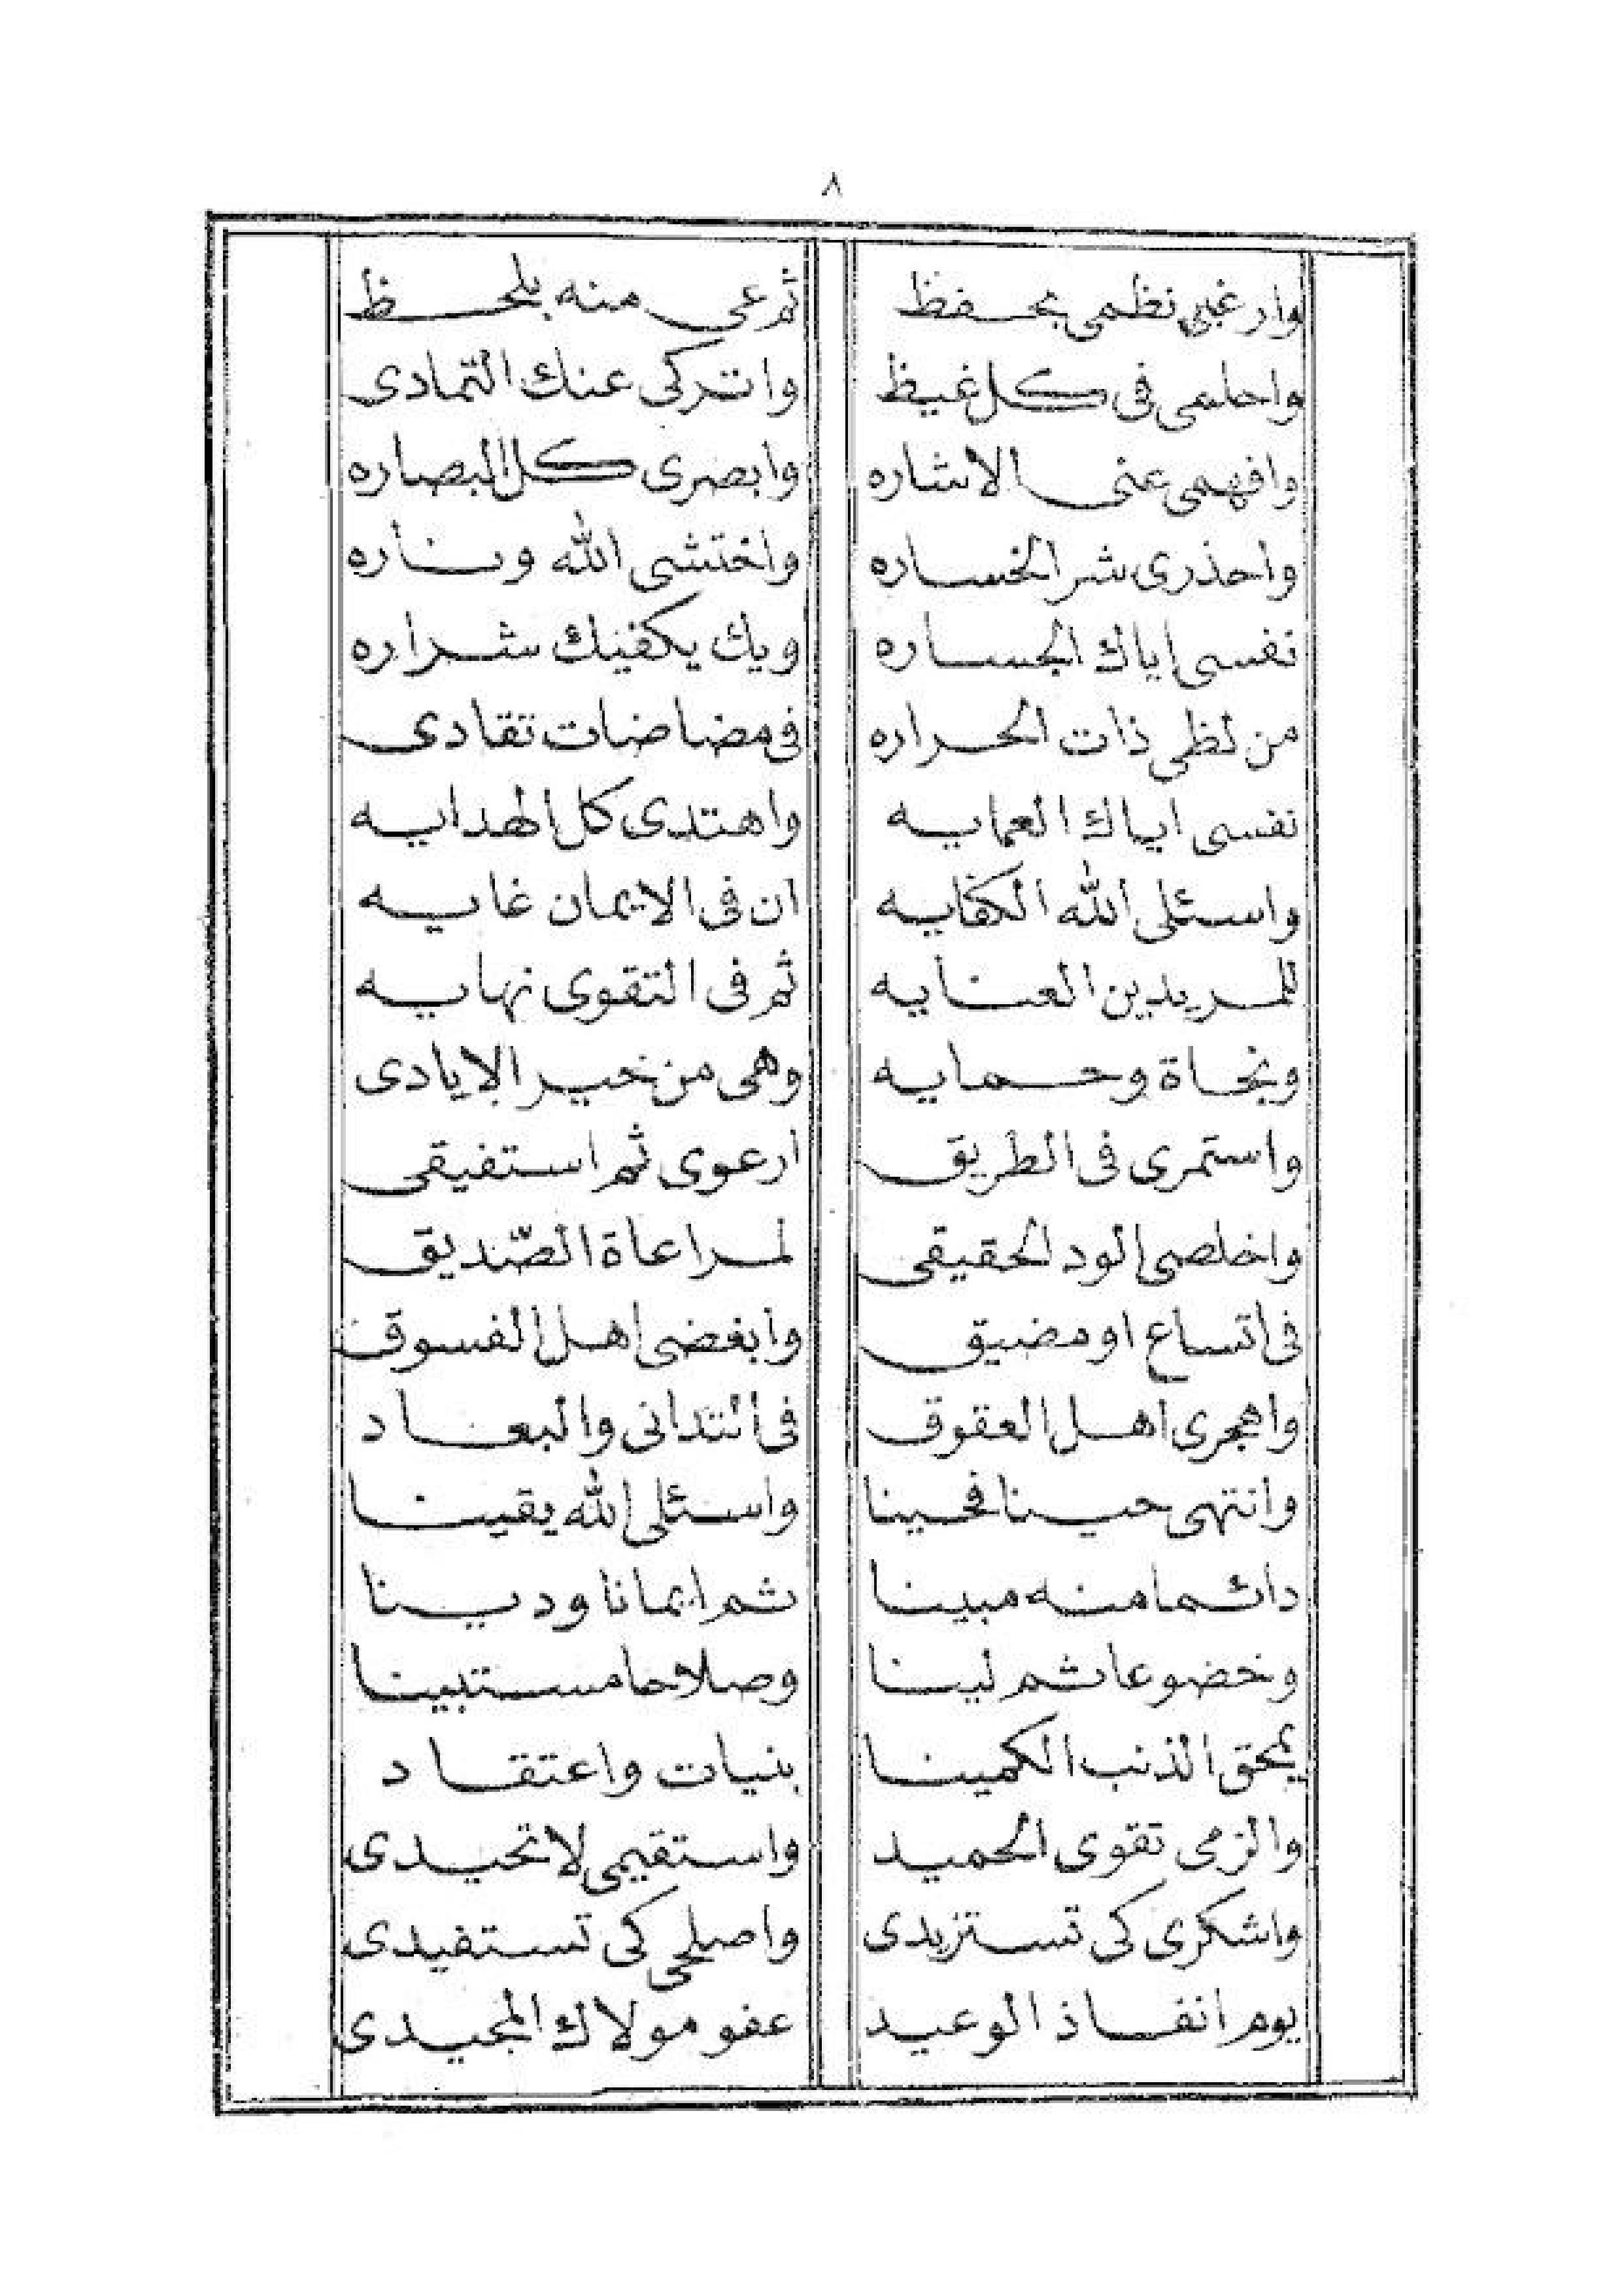 ٨
وارغبى نظمى بحفظ ثم عى منه بلحظ
واحلمى فى كل غيظ واتركى عنك التمادى
وافهمى عنى الاشاره وابصرى كل البصاره
واحذرى شر الخساره واختشى الله وناره
نفسى اياك الجساره ويك يكفيك شراره
من لظى ذات الحراره فى مضاضات تقادى
نفسى اياك العمايه واهتدى كل الهدايه
واسئلى الله الكفايه ان فى الايمان غايه
للمريدين العنايه ثم فى التقوى نهايه
ونجاة وحمايه وهى من خير الايادى
واستمرى فى الطريق ارعوى ثم استفيقى
واخلصى الود الحقيقى لمراعاة الصّديق
فى اتساع او مضيق وابغضى اهل الفسوق
واهجرى اهل العقوق فى التدانى والبعاد
وانتهى حينا فحينا واسئلى الله يقينا
دائما منه مبينا ثم ايمانا ودينا
وخضوعا ثم لينا وصلاحا مستبينا
يمحق الذنب الكمينا بنيات واعتقاد
والزمى تقوى الحميد واستقيمى لا تحيدى
واشكرى كى تستزيدى واصلحى كى تستفيدى
يوم انفاذ الوعيد عفو مولاك المجيدى